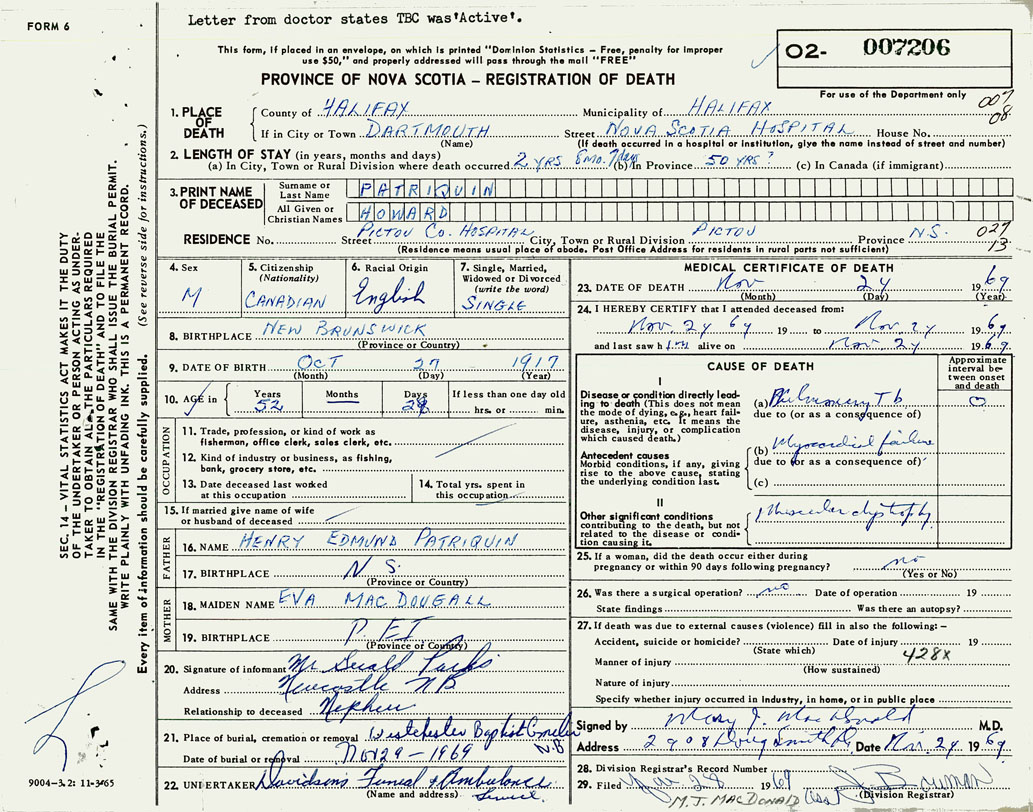 FORM 6
Letter from doctor states TBC was 'Active'.
This form, if placed in an envelope, on which is printed "Dominion Statistics – Free, penalty for improper
use $50," and properly addressed will pass through the mail "FREE"
O2- 007206
PROVINCE OF NOVA SCOTIA – REGISTRATION OF DEATH
For use of the Department only
007
08
1. PLACE OF DEATH
County of HALIFAX Municipality of HALIFAX
If in City or Town DARTMOUTH Street NOVA SCOTIA HOSPITAL House No.
(Name) (If death occurred in a hospital or institution, give the name instead of street and number)
2. LENGTH OF STAY (in years, months and days)
(a) In City, Town or Rural Division where death occurred 2 YRS 8 mo. 7 days (b) In Province 50 YRS? (c) In Canada (if immigrant)
3. PRINT NAME OF DECEASED
Surname or Last Name PATRIQUIN
All Given or Christian Names HOWARD
RESIDENCE No. Street PICTOU CO. HOSPITAL City, Town or Rural Division PICTOU Province N.S.
027
13
(Residence means usual place of abode. Post Office Address for residents in rural parts not sufficient)
4. Sex M
5. Citizenship (Nationality) CANADIAN
6. Racial Origin English
7. Single, Married, Widowed or Divorced (write the word) SINGLE
8. BIRTHPLACE NEW BRUNSWICK
(Province or Country)
9. DATE OF BIRTH OCT 27 1917
(Month) (Day) (Year)
10. AGE in Years 52 Months Days 28 If less than one day old hrs. or min.
OCCUPATION
11. Trade, profession, or kind of work as
fisherman, office clerk, sales clerk, etc.
12. Kind of industry or business, as fishing,
bank, grocery store, etc.
13. Date deceased last worked
at this occupation
14. Total yrs. spent in
this occupation
15. If married give name of wife
or husband of deceased
FATHER
16. NAME HENRY EDMUND PATRIQUIN
17. BIRTHPLACE N.S.
(Province or Country)
MOTHER
18. MAIDEN NAME EVA MACDOUGALL
19. BIRTHPLACE P. EI
(Province or Country)
20. Signature of informant Mr
Address Newcastle NB
Relationship to deceased Nephew
21. Place of burial, cremation or removal Westchester Baptist
N.B
Date of burial or removal Nov 29 – 1969
22. UNDERTAKER Davidson's Funeral & Ambulance
(Name and address) Service.
MEDICAL CERTIFICATE OF DEATH
23. DATE OF DEATH Nov 24 1969
(Month) (Day) (Year)
24. I HEREBY CERTIFY that I attended deceased from:
Nov. 24 69 19 to Nov. 24 1969
and last saw him alive on Nov. 24 1969
CAUSE OF DEATH
Approximate interval between onset and death
I
Disease or condition directly leading to death (This does not mean the mode of dying, e.g., heart failure, asthenia, etc. It means the disease, injury, or complication which caused death.)
(a) Pulmonary Tb
due to (or as a consequence of)
Antecedent causes
Morbid conditions, if any, giving rise to the above cause, stating the underlying condition last.
(b) Myocardial failure
due to (or as a consequence of)
(c)
II
Other significant conditions contributing to the death, but not related to the disease or condition causing it.
Muscular dystrophy
25. If a woman, did the death occur either during
pregnancy or within 90 days following pregnancy? no
(Yes or No)
26. Was there a surgical operation? no Date of operation 19
State findings Was there an autopsy?
27. If death was due to external causes (violence) fill in also the following: –
Accident, suicide or homicide? Date of injury 19
(State which)
428X
Manner of injury
(How sustained)
Nature of injury
Specify whether injury occurred in Industry, in home, or in public place
Signed by Mary J. MacDonald M.D.
Address Date Nov. 24 1969
28. Division Registrar's Record Number
29. Filed 28 1969
(Division Registrar)
M.J. MACDONALD
SEC. 14 – VITAL STATISTICS ACT MAKES IT THE DUTY
OF THE UNDERTAKER OR PERSON ACTING AS UNDER-
TAKER TO OBTAIN ALL THE PARTICULARS REQUIRED
IN THE "REGISTRATION OF DEATH" AND TO FILE THE
SAME WITH THE DIVISION REGISTRAR WHO SHALL ISSUE THE BURIAL PERMIT.
WRITE PLAINLY WITH UNFADING INK. THIS IS A PERMANENT RECORD.
Every item of information should be carefully supplied. (See reverse side for instructions.)
9004-3.2: 11-3-65